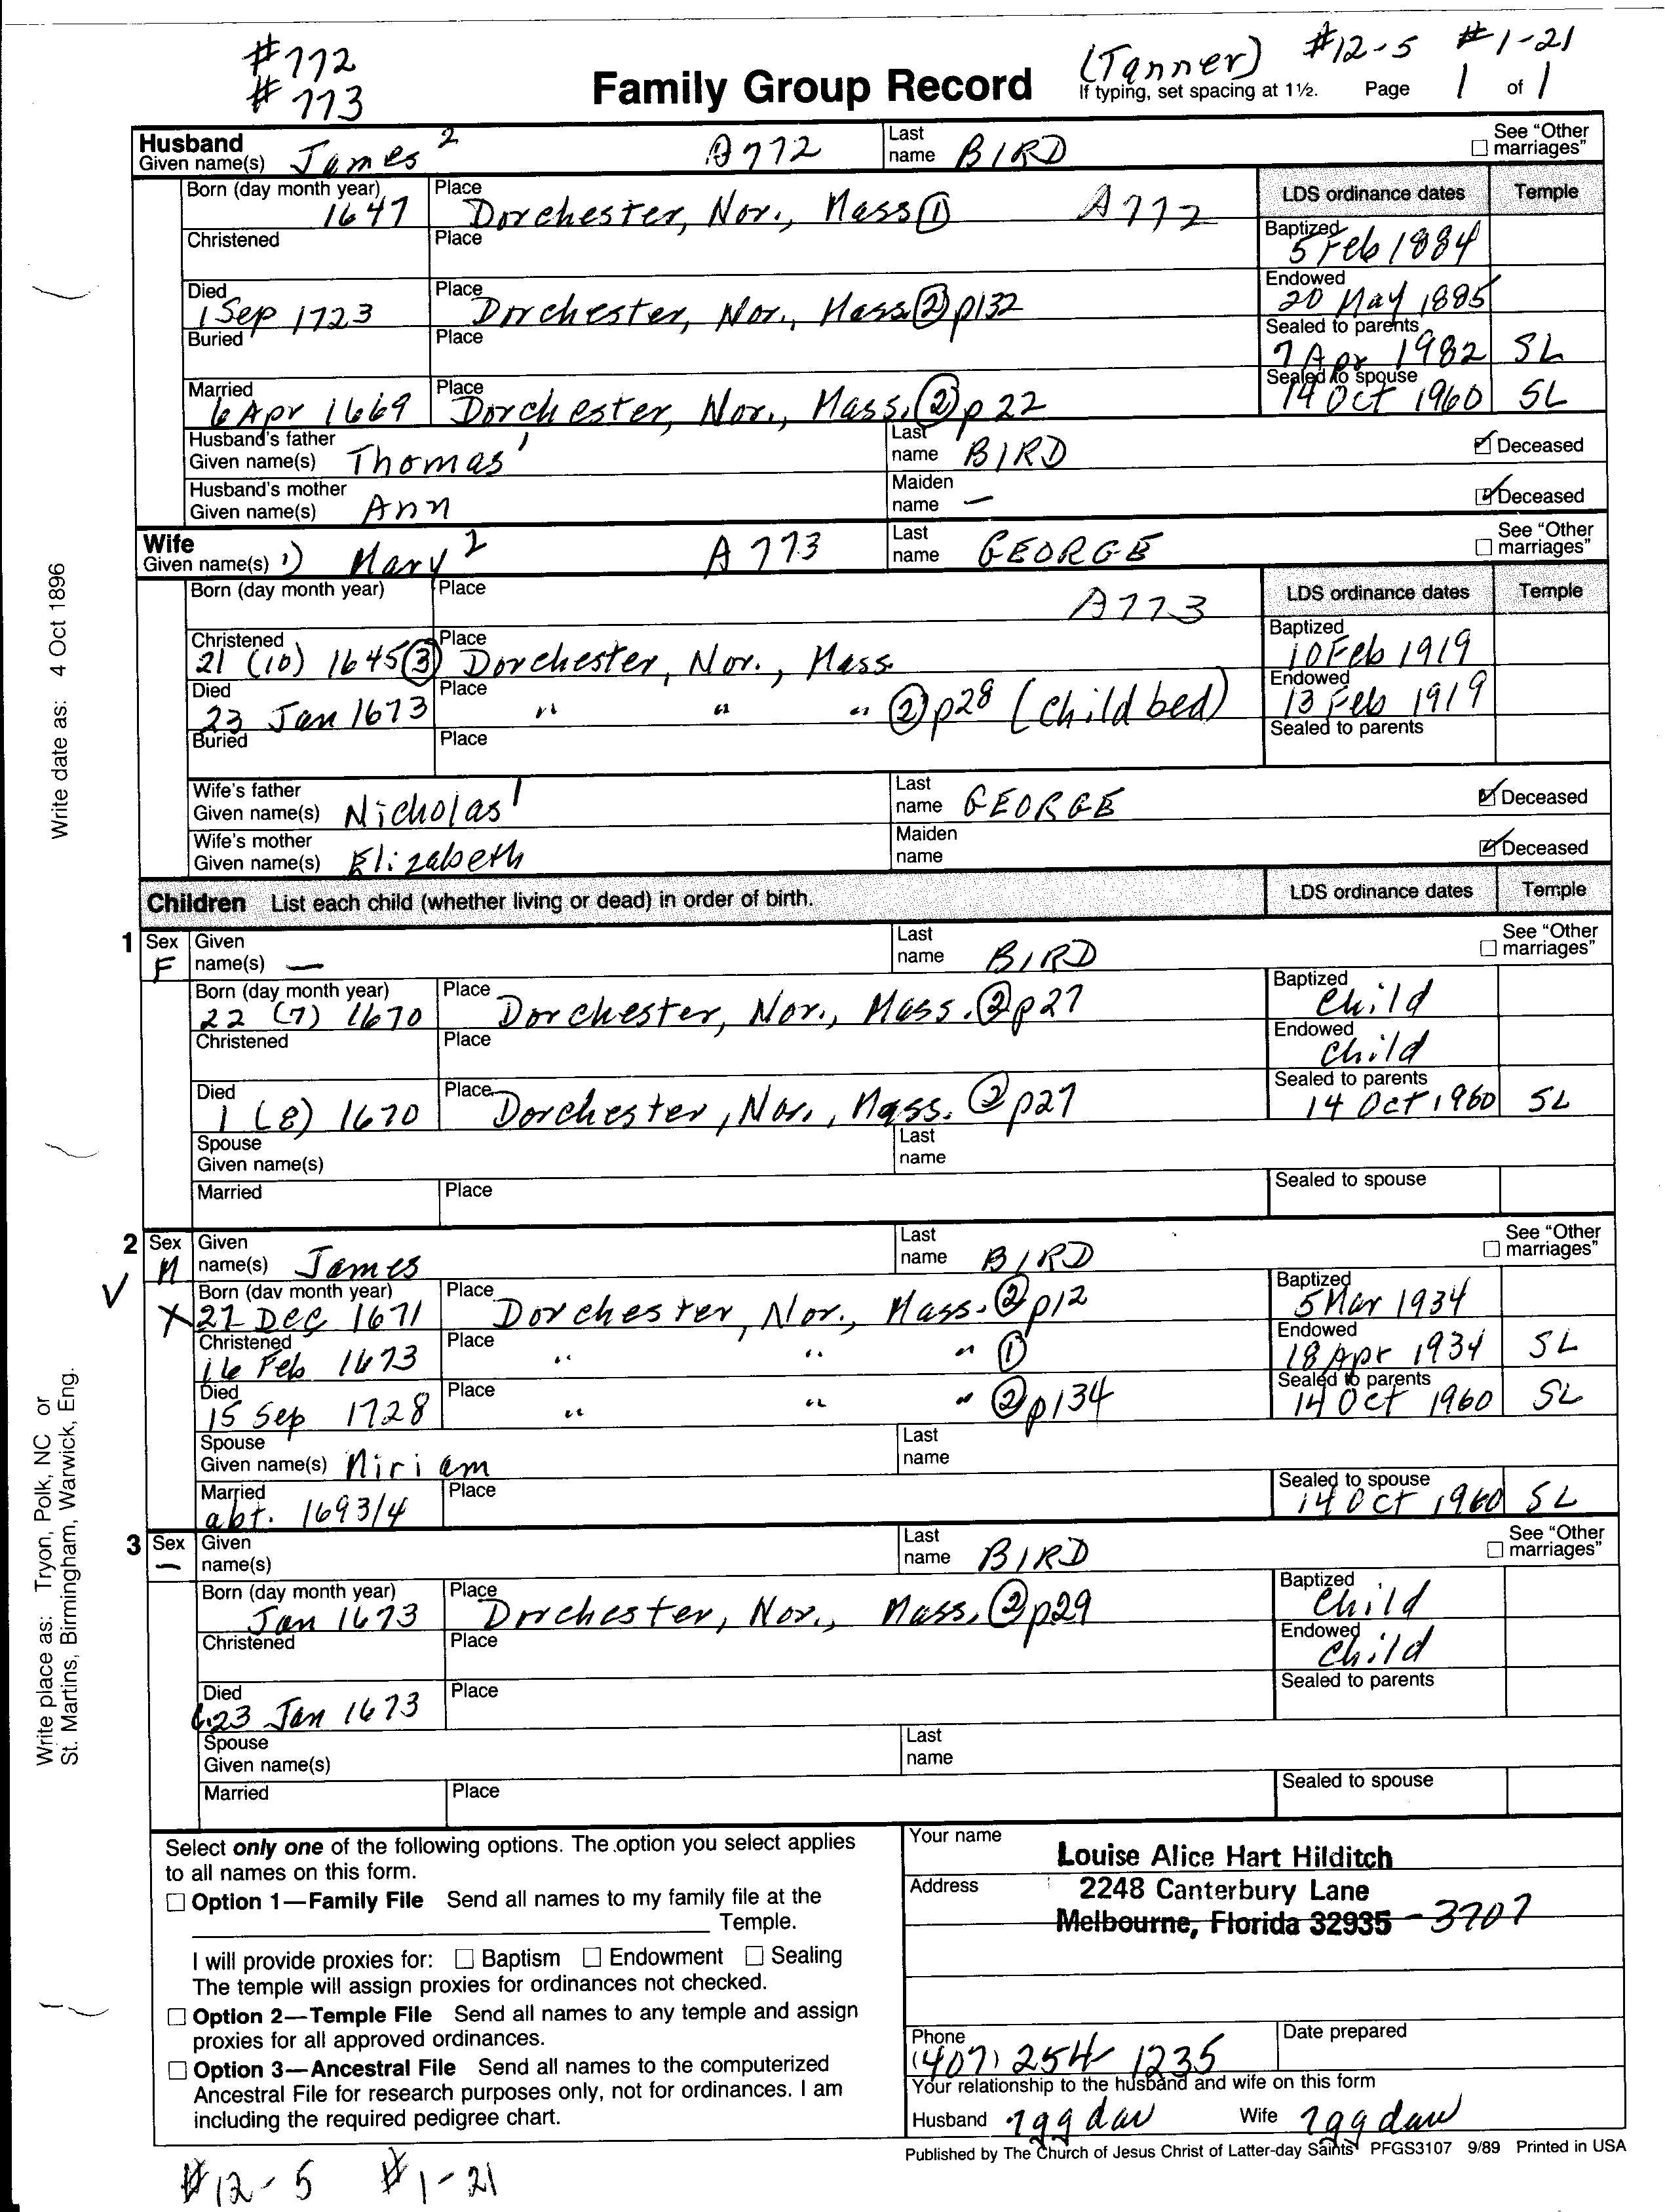 #772 (Tanner) #12-5 #1-21
#773 Family Group Record If typing, set spacing at 1½. Page 1 of 1
Husband Given name(s) James 2 A772 Last name BIRD ☐ See "Other marriages"
Born (day month year) 1647 Place Dorchester, Nor., Mass ① A772 LDS ordinance dates Temple
Christened Place Baptized 5 Feb 1884
Died 1 Sep 1723 Place Dorchester, Nor., Mass. ② p132 Endowed 20 May 1885
Buried Place Sealed to parents 7 Apr 1982 SL
Married 6 Apr 1669 Place Dorchester, Nor., Mass. ② p 22 Sealed to spouse 14 Oct 1960 SL
Husband's father Given name(s) Thomas 1 Last name BIRD ☑ Deceased
Husband's mother Given name(s) Ann Maiden name — ☑ Deceased
Wife Given name(s) 1) Mary 2 A 773 Last name GEORGE ☐ See "Other marriages"
Born (day month year) Place A773 LDS ordinance dates Temple
Christened 21 (10) 1645 ③ Place Dorchester, Nor., Mass Baptized 10 Feb 1919
Died 23 Jan 1673 Place " " " ② p28 (child bed) Endowed 13 Feb 1919
Buried Place Sealed to parents
Wife's father Given name(s) Nicholas 1 Last name GEORGE ☑ Deceased
Wife's mother Given name(s) Elizabeth Maiden name ☑ Deceased
Children List each child (whether living or dead) in order of birth. LDS ordinance dates Temple
1 Sex F Given name(s) — Last name BIRD ☐ See "Other marriages"
Born (day month year) 22 (7) 1670 Place Dorchester, Nor., Mass. ② p27 Baptized Child
Christened Place Endowed Child
Died 1 (8) 1670 Place Dorchester, Nor., Mass. ② p27 Sealed to parents 14 Oct 1960 SL
Spouse Given name(s) Last name
Married Place Sealed to spouse
2 Sex M Given name(s) James Last name BIRD ☐ See "Other marriages"
✓ X Born (day month year) 27 Dec 1671 Place Dorchester, Nor., Mass. ② p12 Baptized 5 Mar 1934
Christened 16 Feb 1673 Place " " " ① Endowed 18 Apr 1934 SL
Died 15 Sep 1728 Place " " " ② p134 Sealed to parents 14 Oct 1960 SL
Spouse Given name(s) Miriam Last name
Married abt. 1693/4 Place Sealed to spouse 14 Oct 1960 SL
3 Sex — Given name(s) Last name BIRD ☐ See "Other marriages"
Born (day month year) Jan 1673 Place Dorchester, Nor., Mass. ② p29 Baptized Child
Christened Place Endowed Child
Died 23 Jan 1673 Place Sealed to parents
Spouse Given name(s) Last name
Married Place Sealed to spouse
Write date as: 4 Oct 1896
Write place as: Tryon, Polk, NC or
St. Martins, Birmingham, Warwick, Eng.
Select only one of the following options. The option you select applies
to all names on this form.
☐ Option 1—Family File Send all names to my family file at the
Temple.
I will provide proxies for: ☐ Baptism ☐ Endowment ☐ Sealing
The temple will assign proxies for ordinances not checked.
☐ Option 2—Temple File Send all names to any temple and assign
proxies for all approved ordinances.
☐ Option 3—Ancestral File Send all names to the computerized
Ancestral File for research purposes only, not for ordinances. I am
including the required pedigree chart.
Your name Louise Alice Hart Hilditch
Address 2248 Canterbury Lane
Melbourne, Florida 32935 - 3707
Phone (407) 254 1235 Date prepared
Your relationship to the husband and wife on this form
Husband 7gg dau Wife 7gg dau
Published by The Church of Jesus Christ of Latter-day Saints PFGS3107 9/89 Printed in USA
#12-5 #1-21